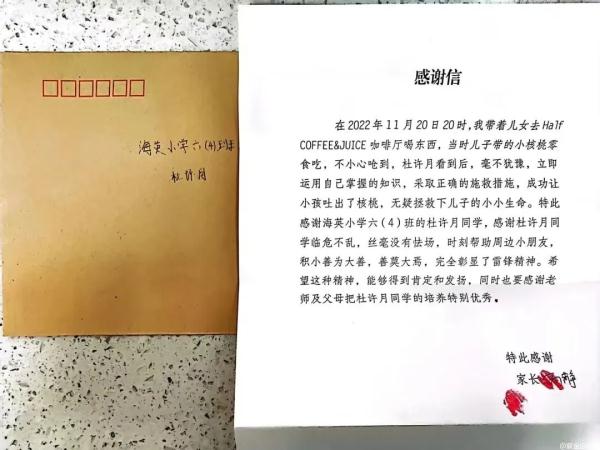 海英小学六(4)班
杜许月
感谢信
在2022年11月20日20时,我带着儿女去Half
COFFEE&JUICE咖啡厅喝东西,当时儿子带的小核桃零
食吃,不小心呛到,杜许月看到后,毫不犹豫,立即
运用自己掌握的知识,采取正确的施救措施,成功让
小孩吐出了核桃,无疑拯救下儿子的小小生命。特此
感谢海英小学六(4)班的杜许月同学,感谢杜许月同
学临危不乱,丝毫没有怯场,时刻帮助周边小朋友,
积小善为大善,善莫大焉,完全彰显了雷锋精神。希
望这种精神,能够得到肯定和发扬,同时也要感谢老
师及父母把杜许月同学的培养特别优秀。
特此感谢
家长